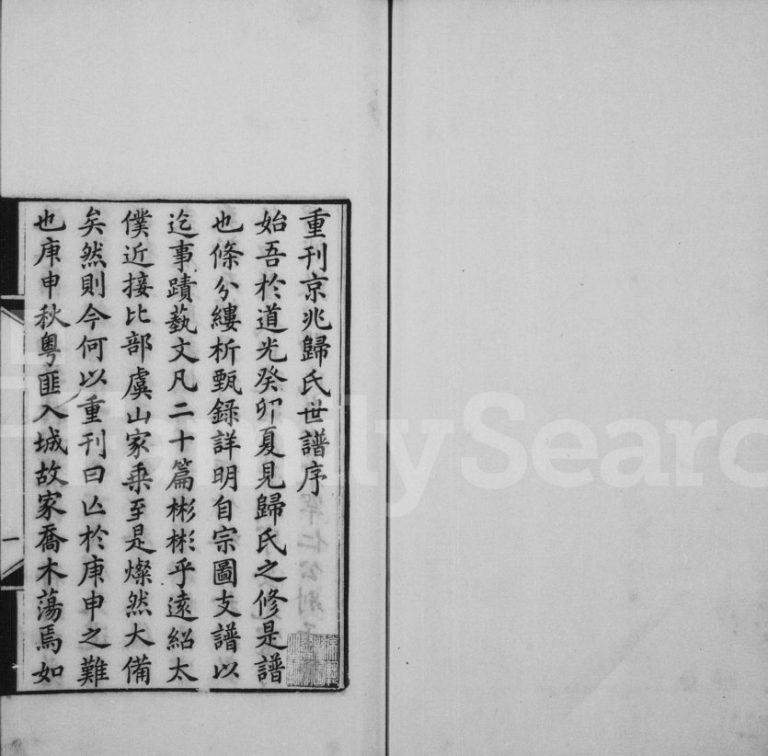 重刊京兆歸氏世譜序
始吾於道光癸卯夏見歸氏之修是譜
也條分縷析甄錄詳明自宗圖支譜以
迄事蹟藝文凡二十篇彬彬乎遠紹太
僕近接比部虞山家乘至是燦然大備
矣然則今何以重刊曰亾於庚申之難
也庚申秋粵匪入城故家喬木蕩焉如
一
FamilySearc